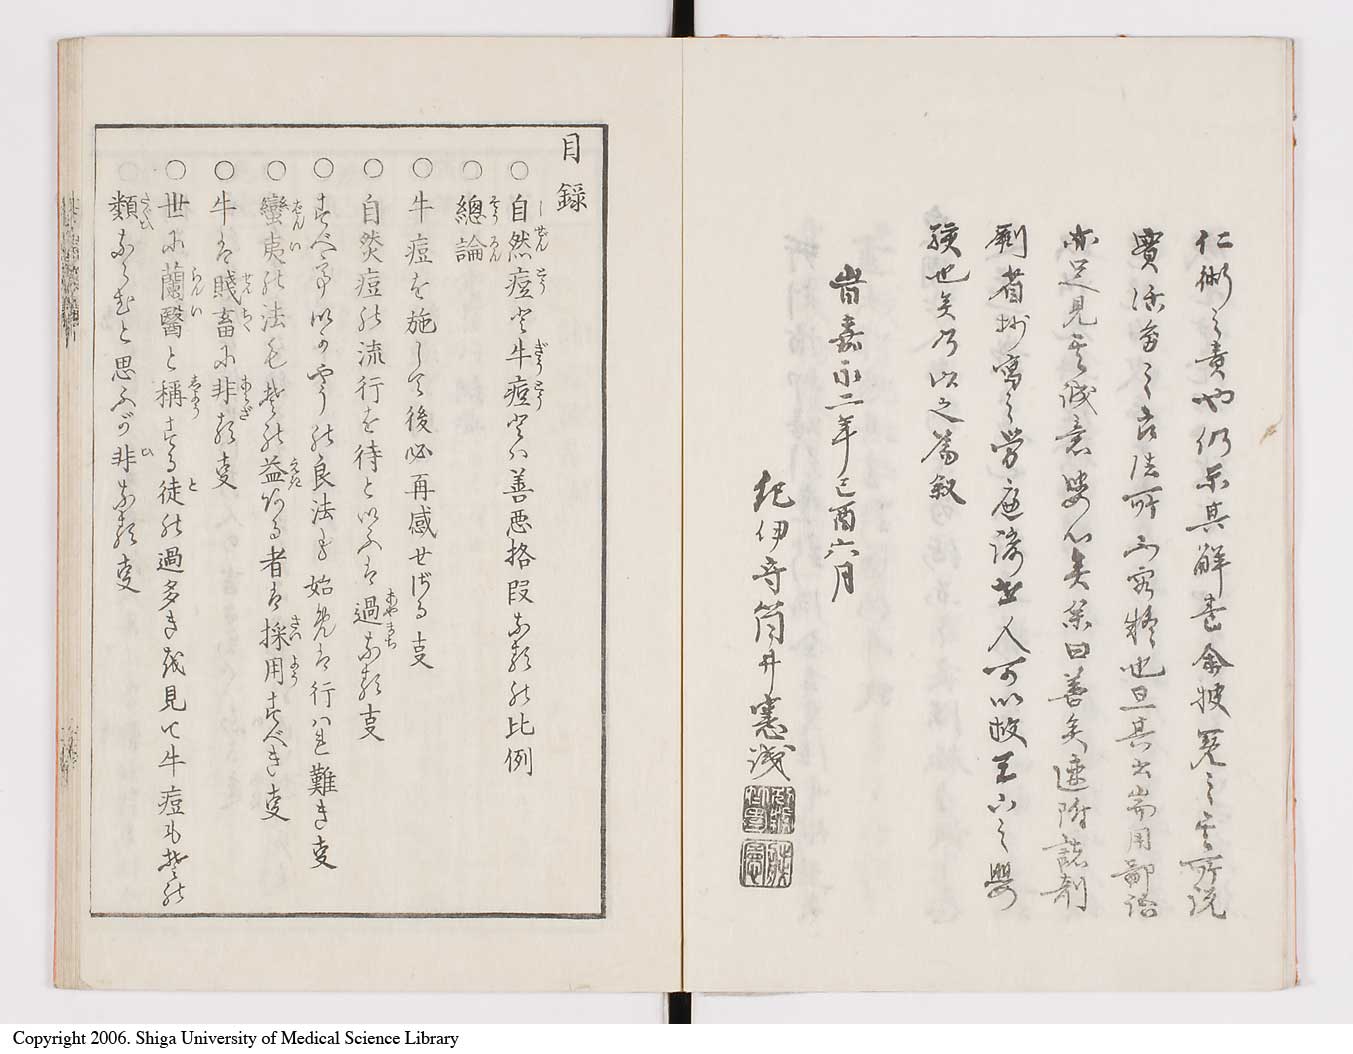 仁術之責也仍示其解甚禽披覧之其所説
實活命之良法所不容疑也且其書崇用鄙語
亦足見其誠意婆心矣余曰善矣速附諸剞
劂省抄寫之勞廣済世人可以救天下之嬰
孩也矣乃以之為叙
昔嘉永二年己酉六月
紀伊守筒井憲
目録
○自然痘と牛痘とハ善悪格段なるの比例
○總論
○牛痘を施して後必再感せざる事
○自然痘の流行を待といふは過なる事
○すべて事かやうの良法も始めは行ハれ難き事
○蠻夷の法も其の益ある者は採用すべき事
○牛は賤畜に非る事
○世に蘭醫と稱する徒の過多きを見て牛痘も其の
類ならむと思ふが非なる事
Copyright 2006. Shiga University of Medical Science Library